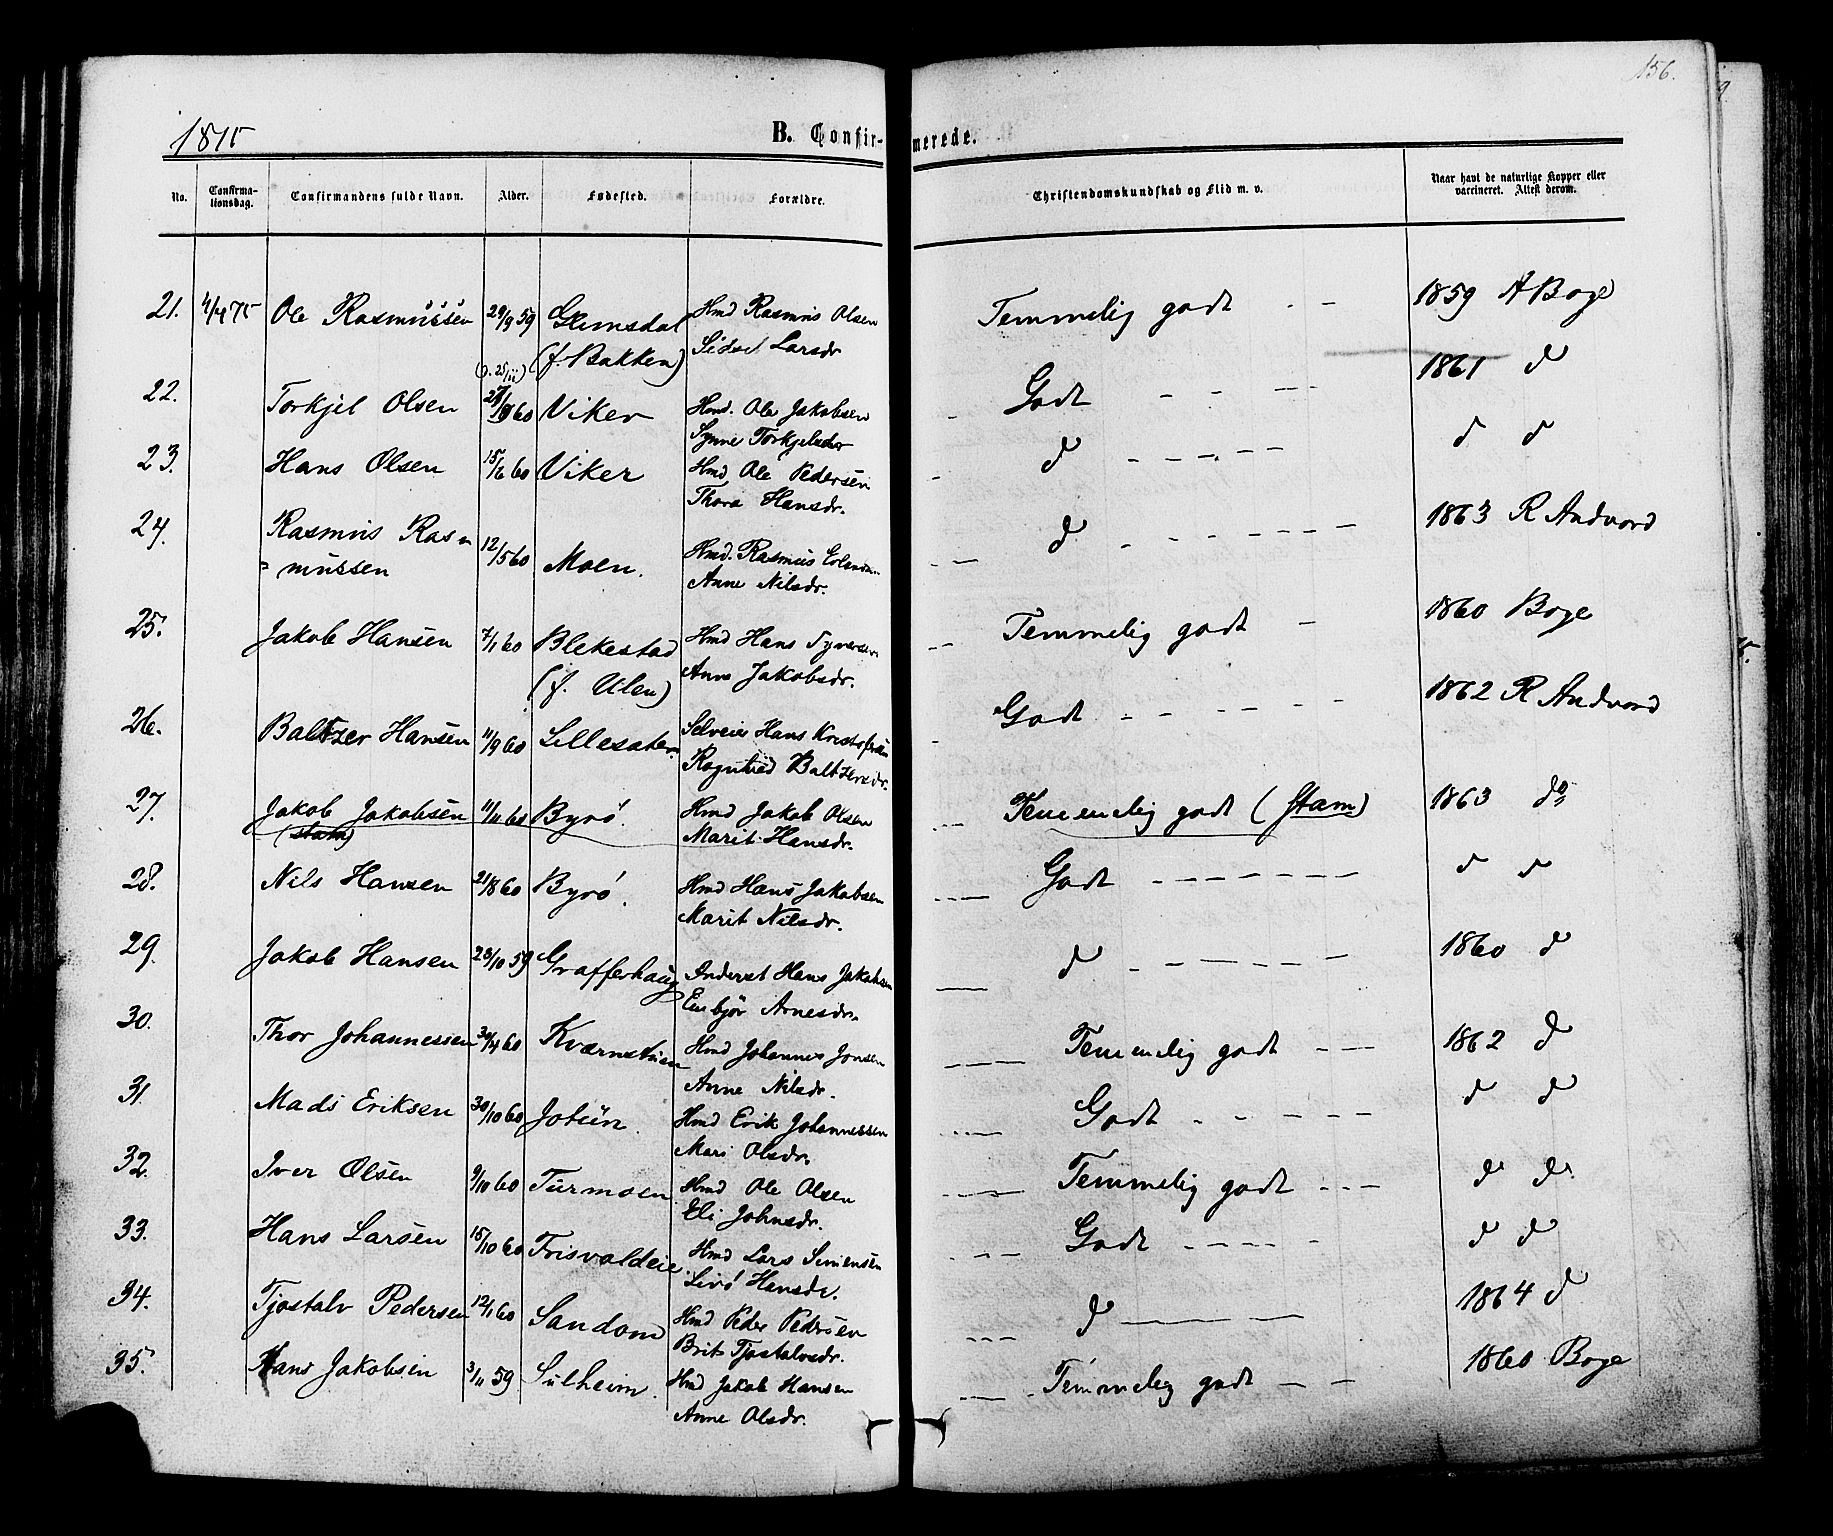 156.
1875
B. Confir-
merede.
No.
Confirma-
tionsdag.
Confirmandens fulde Navn.
Alder.
Fødested.
Forældre.
Christendomskundskab og Flid m. v.
Naar havt de naturlige Kopper eller
vaccineret. Attest derom.
21. 4/4 75 Ole Rasmussen 29/9 59 Glimsdal Hmd Rasmus Olsen Temmelig godt - - 1859 A Boge
(f. Bakken) Sidsel Larsdr
22. Torkjel Olsen 60 Viker Hmd. Ole Jakobsen Godt - - - - 1861 d
Synne Torkjelsdr
23. Hans Olsen 15/6 60 Viker Hmd Ole Pedersen d - - - - - d d
Thora Hansdr.
24. Rasmus Ras 12/5 60 Moen. Hmd. Rasmus d - - - - - - - 1863 R Andvord
= mussen Anne Nilsdr.
25. Jakob Hansen 7/1 60 Blekestad Hmd Hans Syversen Temmelig godt - 1860 Boge
(f. Ulen) Anne Jakobsdr.
26. Baltzer Hansen 11/9 60 Lillesæter Selveier Hans Kristofersen Godt - - - - - - 1862 R Andvord
Ragnhild Baltzersdr.
27. Jakob Jakobsen 11/11 60 Byrø. Hmd Jakob Olsen Temmelig godt (Stam) 1863 do
(stam) Marit Hansdr.
28. Nils Hansen 21/8 60 Byrø. Hmd Hans Jakobsen Godt - - - - - - - d d
Marit Nilsdr.
29. Jakob Hansen 28/10 59 Grafferhaug Inderst Hans Jakobsen d - - - - - - 1860 d
Embjør Arnesdr.
30. Thor Johannessen 30/4 60 Kværnstuen Hmd Johannes Jonsen Temmelig godt - - - 1862 d
Anne Nilsdr.
31. Mads Eriksen 30/10 60 Jotun. Hmd Erik Johannessen Godt - - - - - d d
Mari Olsdr.
32. Iver Olsen 9/10 60 Turmoen Hmd Ole Olsen Temmelig godt - - - d d
Eli Johnsdr.
33. Hans Larsen 15/10 60 Frisvoldeie Hmd Lars Simensen Godt - - - - - d d
Livø Hansdr.
34. Tjostolv Pedersen 12/1 60 Sandom Hmd Peder Pedersen d - - - 1864 d
Brit Tjostolvsdr.
35. Hans Jakobsen 3/11 59 Sulheim. Hmd Jakob Hansen Temmelig godt - - 1860 Boge
Anne Olsdr.